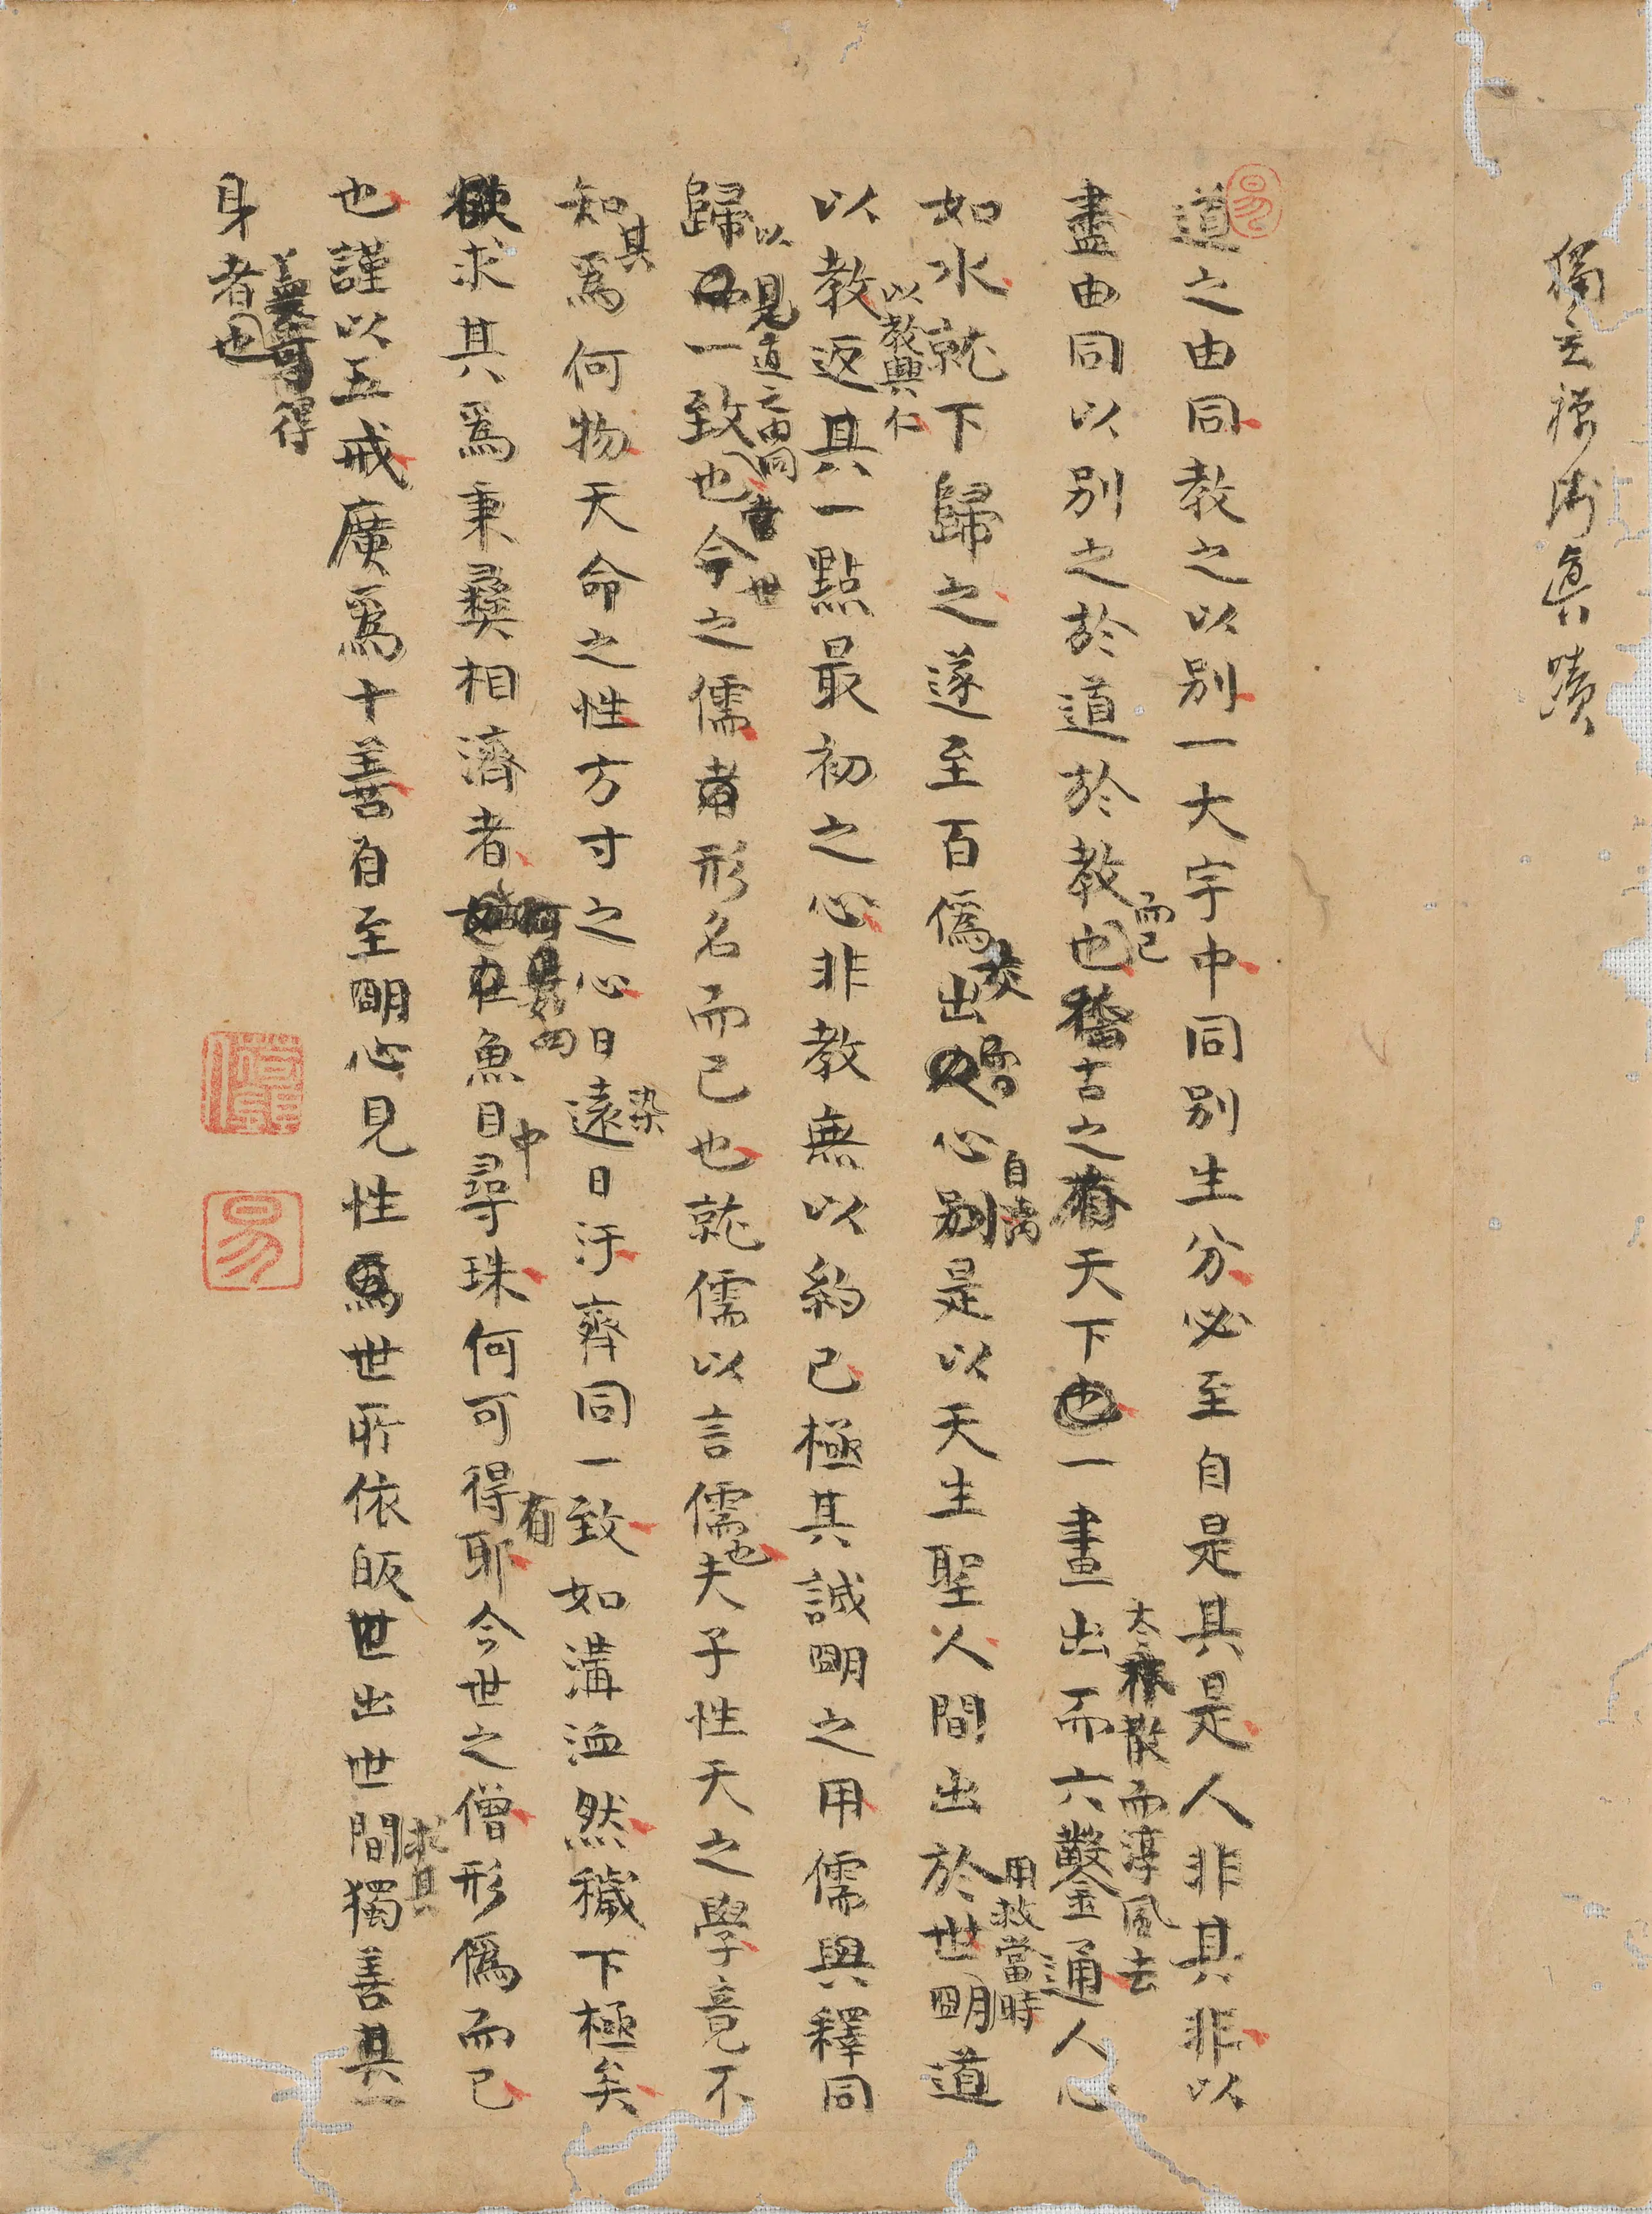 獨立禪師真蹟
道之由同教之以別一大宇中同別生分必至自是其是人非其非以
盡由同以別之於道於教也稽古之有天下也一畫出而六鑿通人心
而已
大樸散而淳風去
如水就下歸之遂至百偽出心別是以天生聖人間出於世明道
交
自
用救當時
以教返其一點最初之心非教無以約己極其誠明之用儒與釋同
以教興仁
歸一致也今之儒者形名而已也就儒以言儒夫子性天之學竟不
以見道之由同
世
也
知爲何物天命之性方寸之心日遠日汙齊同一致如溝洫然穢下極矣
其
染
欲求其爲秉彝相濟者在魚目尋珠何可得耶今世之僧形偽而已
中
有
也謹以五戒廣爲十善自至明心見性爲世所依皈世出世間獨善其一
求其
身者也
得
易
易